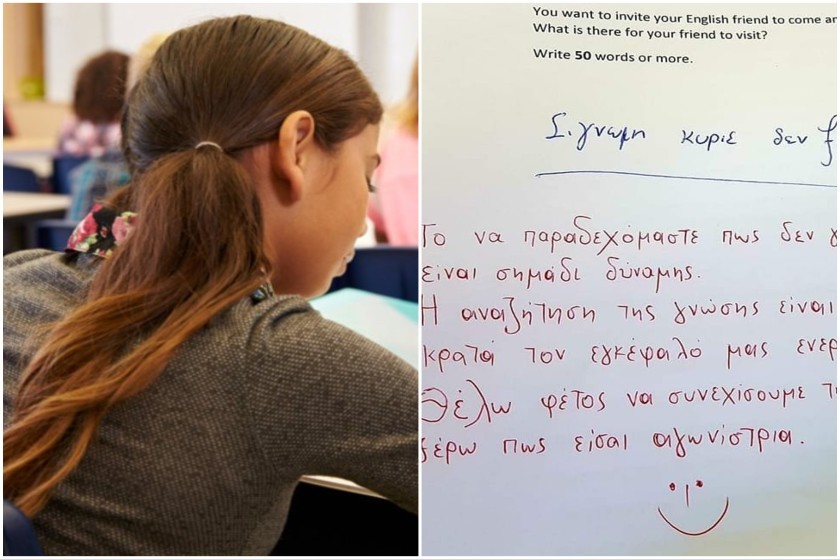 You want to invite your English friend to come
What is there for your friend to visit?
Write 50 words or more.
Σ.γνωμη κυριε δεν
Το να παραδεχόμαστε πως δεν
είναι σημάδι δύναμης.
Η αναζήτηση της γνώσης είναι
κρατά τον εγκέφαλό μας
Θέλω φέτος να συνεχίσουμε
ξέρω πως είσαι αγωνίστρια.